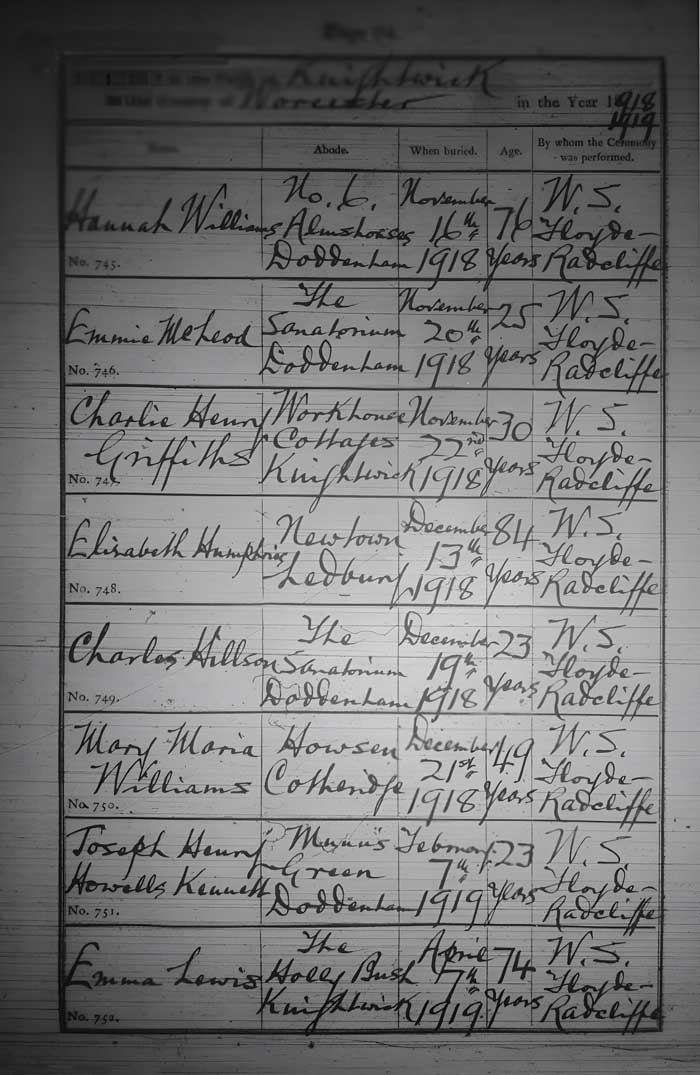 in the Parish of Knightwick
in the County of Worcester in the Year 1918
1919
Name. Abode. When buried. Age. By whom the Ceremony was performed.
Hannah Williams
No. 745.
No. 6.
Almshouses
Doddenham
November
16th
1918
76
Years
W. S.
Floyde-
Radcliffe
Emmie McLeod
No. 746.
The
Sanatorium
Doddenham
November
20th
1918
25
Years
W. S.
Floyde-
Radcliffe
Charlie Henry
Griffiths
No. 747.
Workhouse
Cottages
Knightwick
November
22nd
1918
30
Years
W. S.
Floyde-
Radcliffe
Elisabeth Humphries
No. 748.
Newtown
Ledbury
December
13th
1918
84
Years
W. S.
Floyde-
Radcliffe
Charles Hillson
No. 749.
The
Sanatorium
Doddenham
December
19th
1918
23
Years
W. S.
Floyde-
Radcliffe
Mary Maria
Williams
No. 750.
Howsen
Cotheridge
December
21st
1918
49
Years
W. S.
Floyde-
Radcliffe
Joseph Henry
Howells Kennett
No. 751.
Munn's
Green
Doddenham
February
7th
1919
23
Years
W. S.
Floyde-
Radcliffe
Emma Lewis
No. 752.
The
Holly Bush
Knightwick
April
7th
1919
74
Years
W. S.
Floyde-
Radcliffe